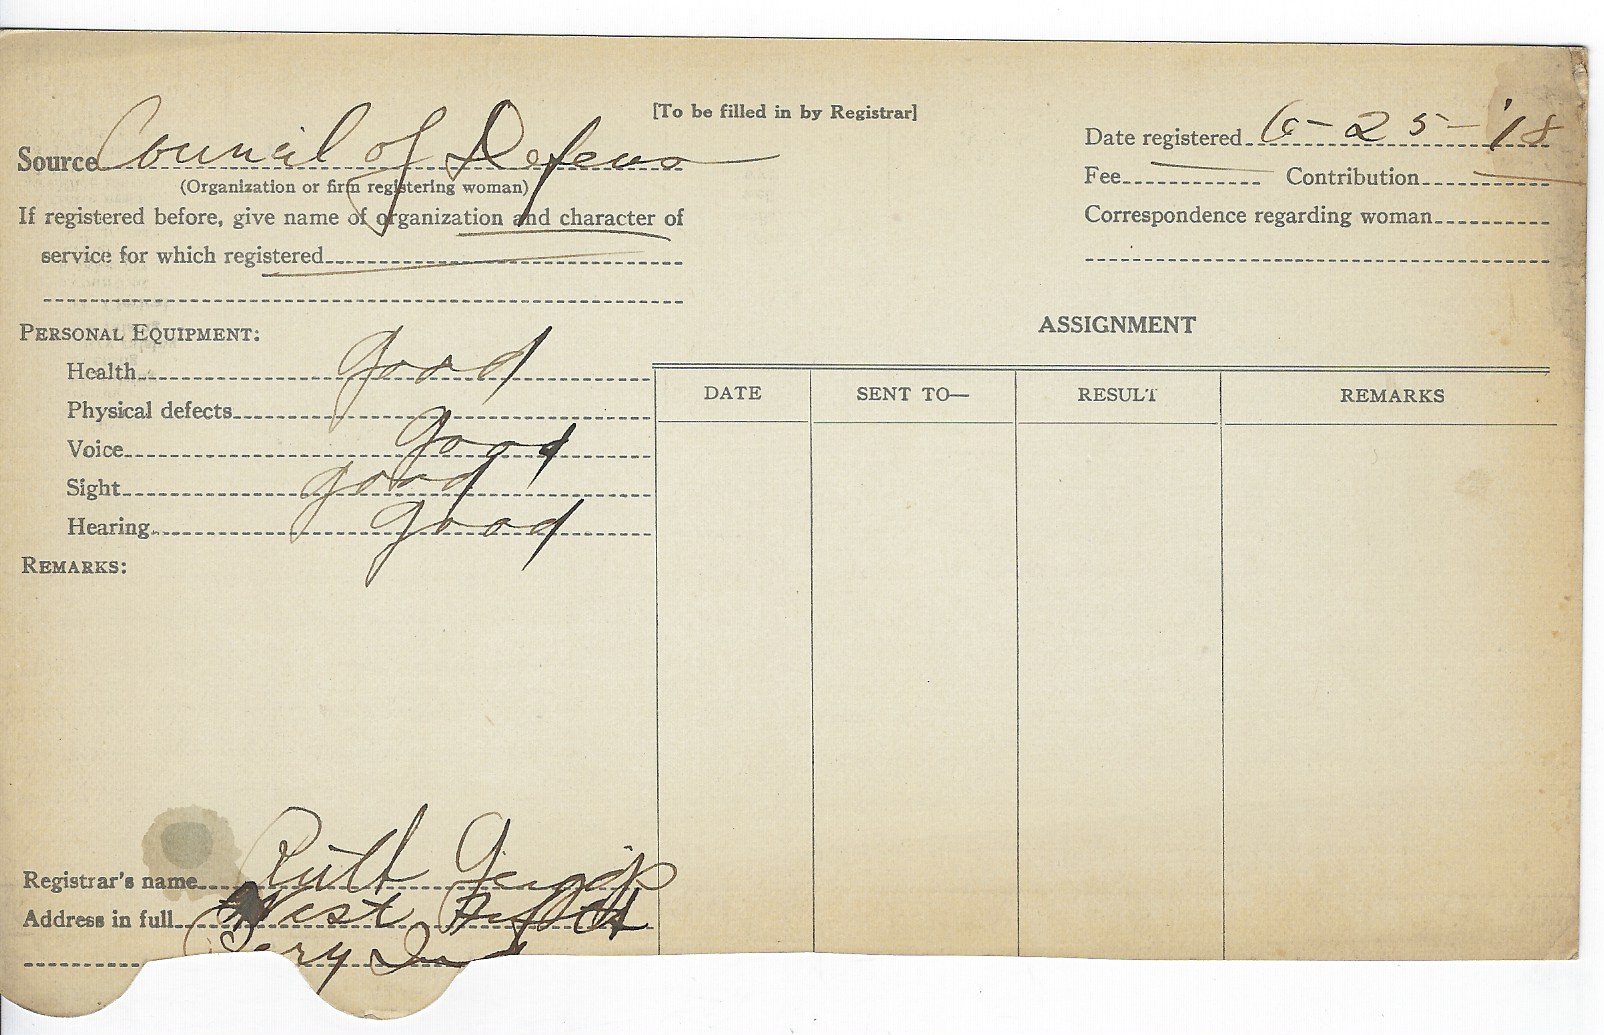 [To be filled in by Registrar]
Source Council of Defense
(Organization or firm registering woman)
If registered before, give name of organization and character of
service for which registered
Date registered 6-25-'18
Fee Contribution
Correspondence regarding woman
PERSONAL EQUIPMENT:
Health good
Physical defects
Voice good
Sight good
Hearing good
REMARKS:
ASSIGNMENT
DATE SENT TO— RESULT REMARKS
Registrar's name Ruth
Address in full West Fifth St
Ind